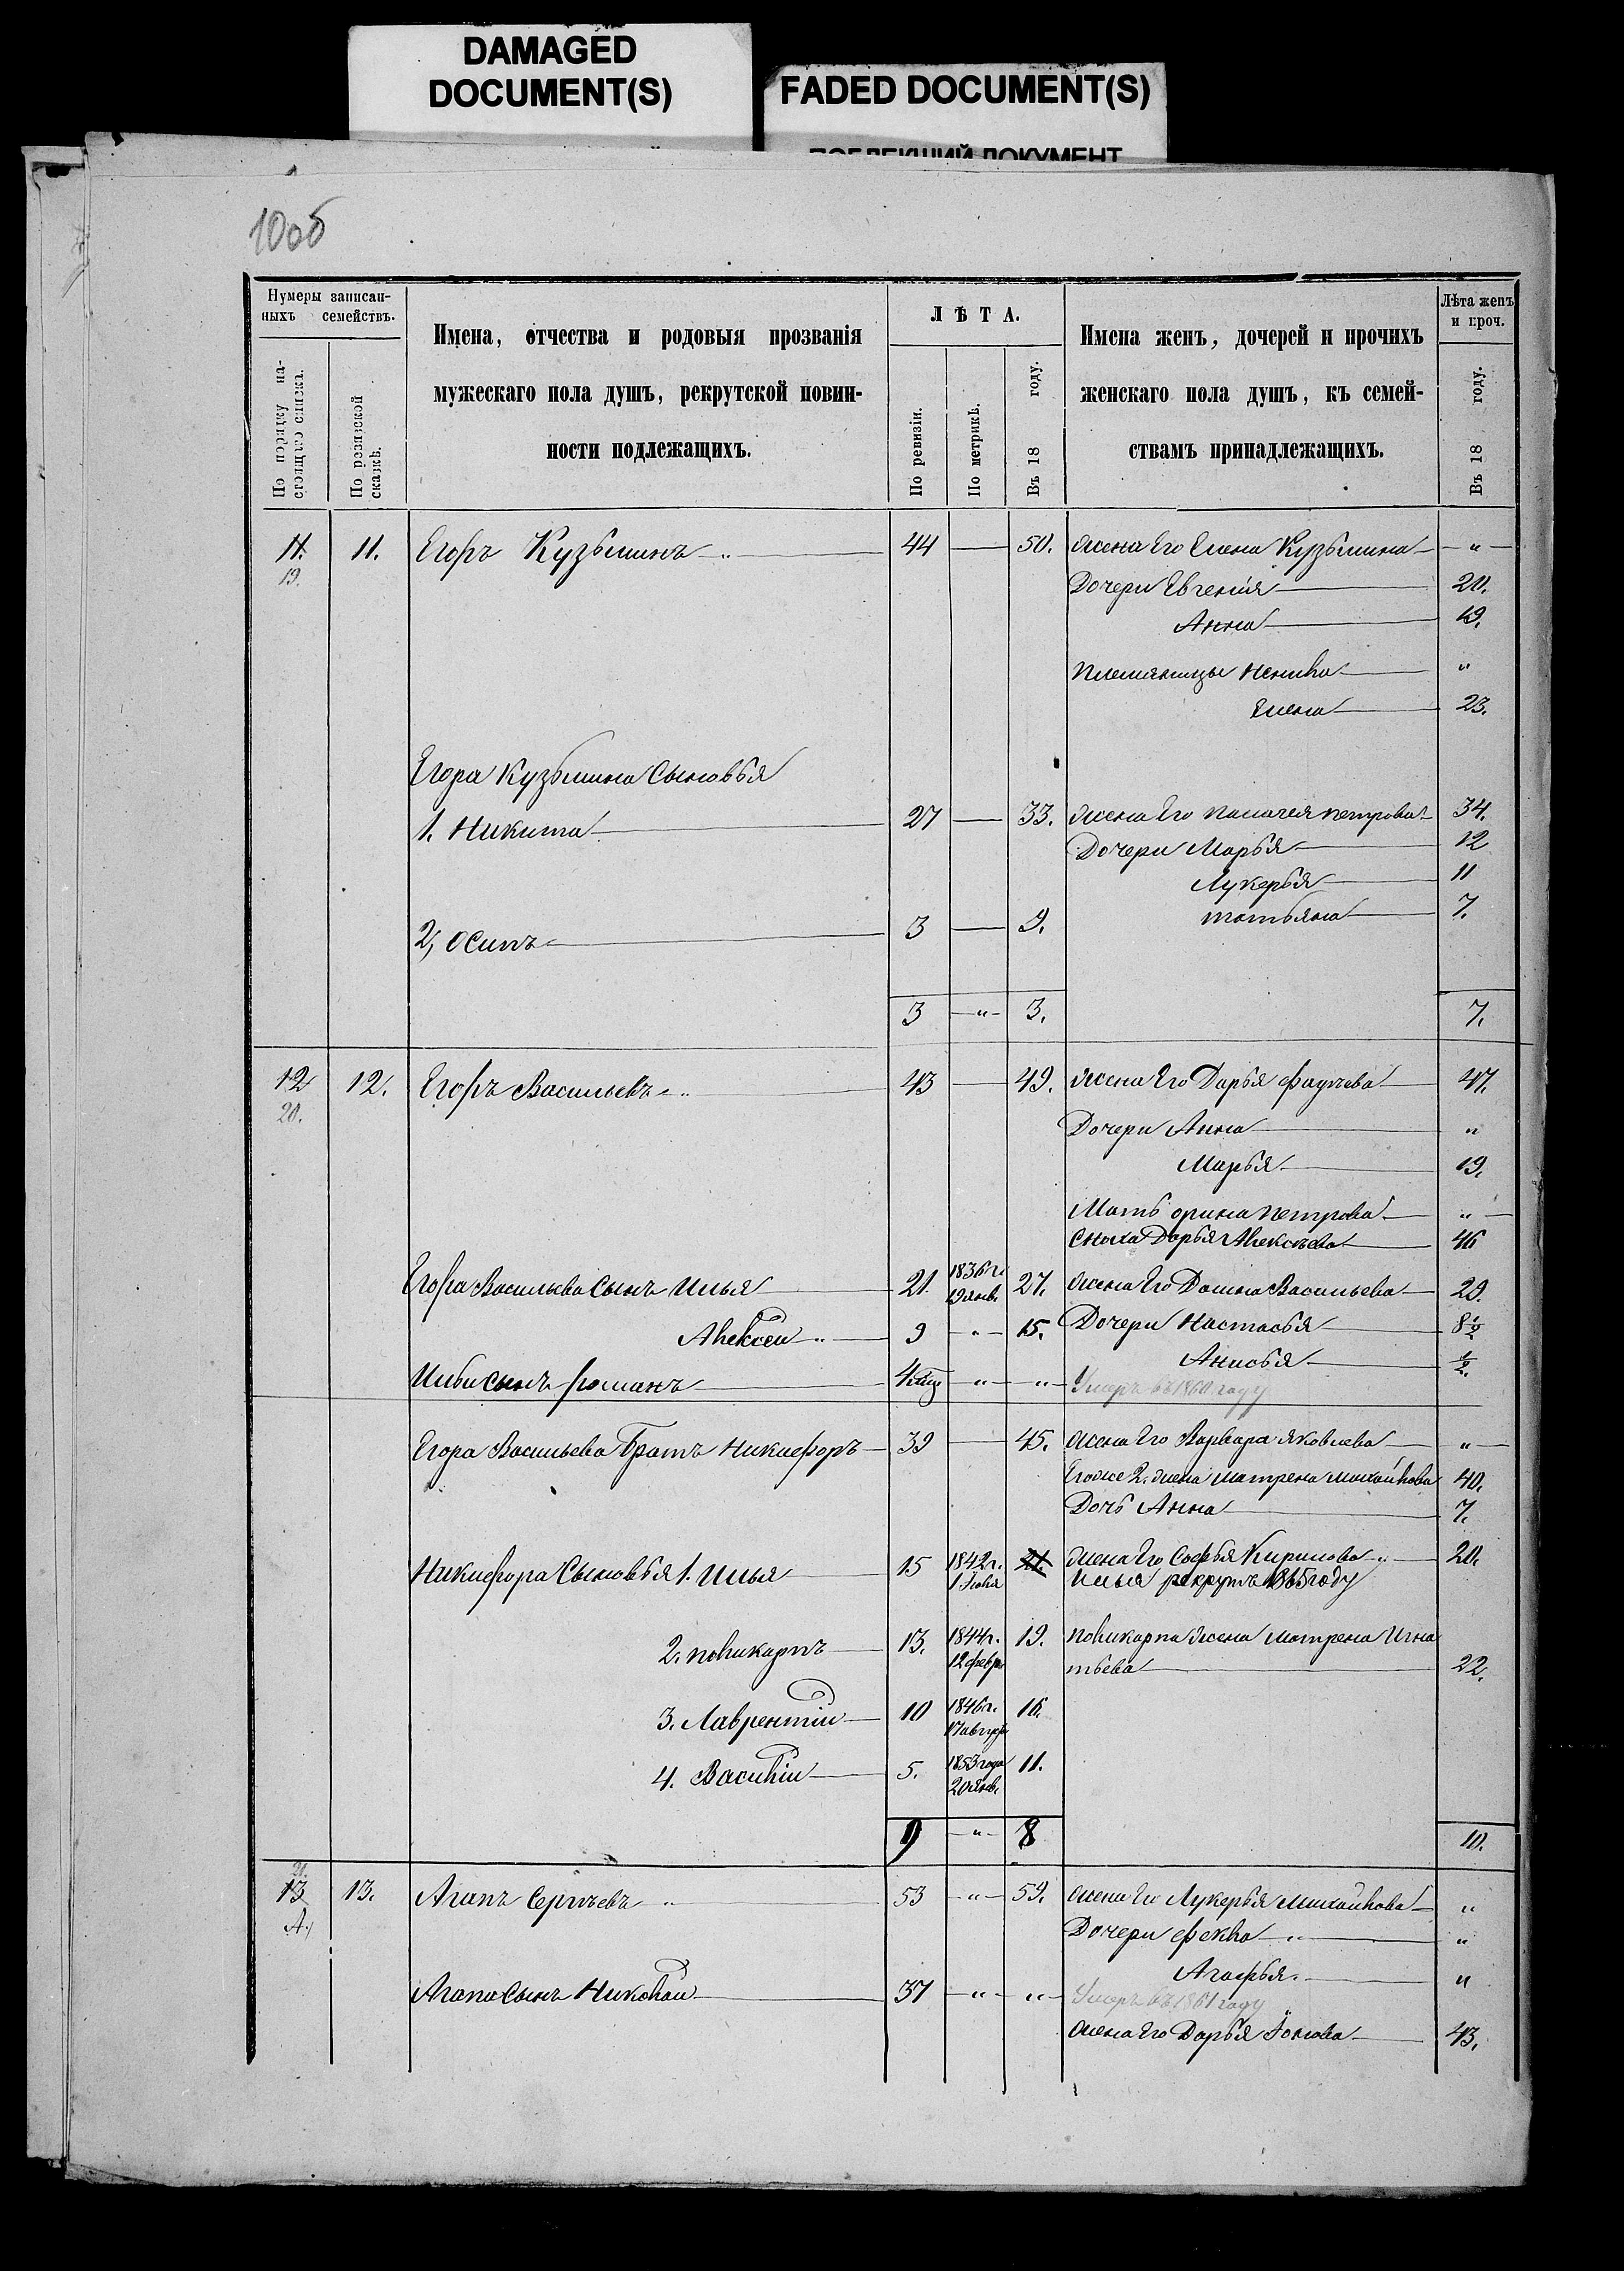 DAMAGED
DOCUMENT(S)
FADED DOCUMENT(S)
ПОБЛЕКШИЙ ДОКУМЕНТ
10об
Нумеры записан-
ныхъ семействъ.
По порядку на-
стоящаго списка.
По ревизской
сказкѣ.
Имена, отчества и родовыя прозванія
мужескаго пола душъ, рекрутской повин-
ности подлежащихъ.
ЛѢТА.
По ревизіи.
По метрикѣ.
Въ 18 году.
Имена женъ, дочерей и прочихъ
женскаго пола душъ, къ семей-
ствамъ принадлежащихъ.
Лѣта женъ
и проч.
Въ 18 году.
11. 11. Егоръ Кузьминъ „ 44 — 50. Жена Его Елена Кузьмина — „ —
19.
Дочери Евгенія 20.
Анна 19.
Племяницы „
Елена 23.
Егора Кузьмина Сыновья
1. Никита 27 — 33. Жена Его Палагея Петрова 34.
Дочери Марья 12
Лукерья 11
Татьяна 7.
2, Осипъ 3 — 9.
3 — „ — 3. 7.
12 12. Егоръ Васильевъ „ 43 — 49. Жена Его Дарья 47.
20.
Дочери Анна „
Марья 19.
Мать Орина Петрова „
Сноха Дарья Алексѣева 46
Егора Васильева Сынъ Илья 21. 1836 г. 19 янв. 27. Жена Его Домна Васильева 29.
Алексѣй „ 9 „ 15. Дочери Настасья 8½
Анисья ½.
Ильи сынъ Романъ „ „ Умеръ въ 1860 году
Егора Васильева Братъ Никифоръ 39 — 45. Жена Его Варвара Яковлева — „ —
Егоже 2. жена Матрена Михайлова 40.
Дочь Анна 7.
Никифора Сыновья 1. Илья 15 1842 г. 1 Іюля 21. Жена Его Софья Кирилова „ 20.
Илья рекрутъ 1865 году
2. Поликарпъ 13. 1844 г. 12 февр. 19. Поликарпа Жена Матрена Игна
тьева 22.
3. Лаврентій 10 1846 г. 17 16.
4. Василій 5. 1853 года 20 янв. 11.
9 — „ — 8 10.
21.
13 13. Агапъ Сергѣевъ „ 53 — „ — 59. Жена Его Лукерья Михайлова „
А.
Дочери Фекла „ „
Агафья. „
Агапа Сынъ Николай 37 — „ — „ — Умеръ въ 1861 году
Жена Его Дарья Іонова 43.